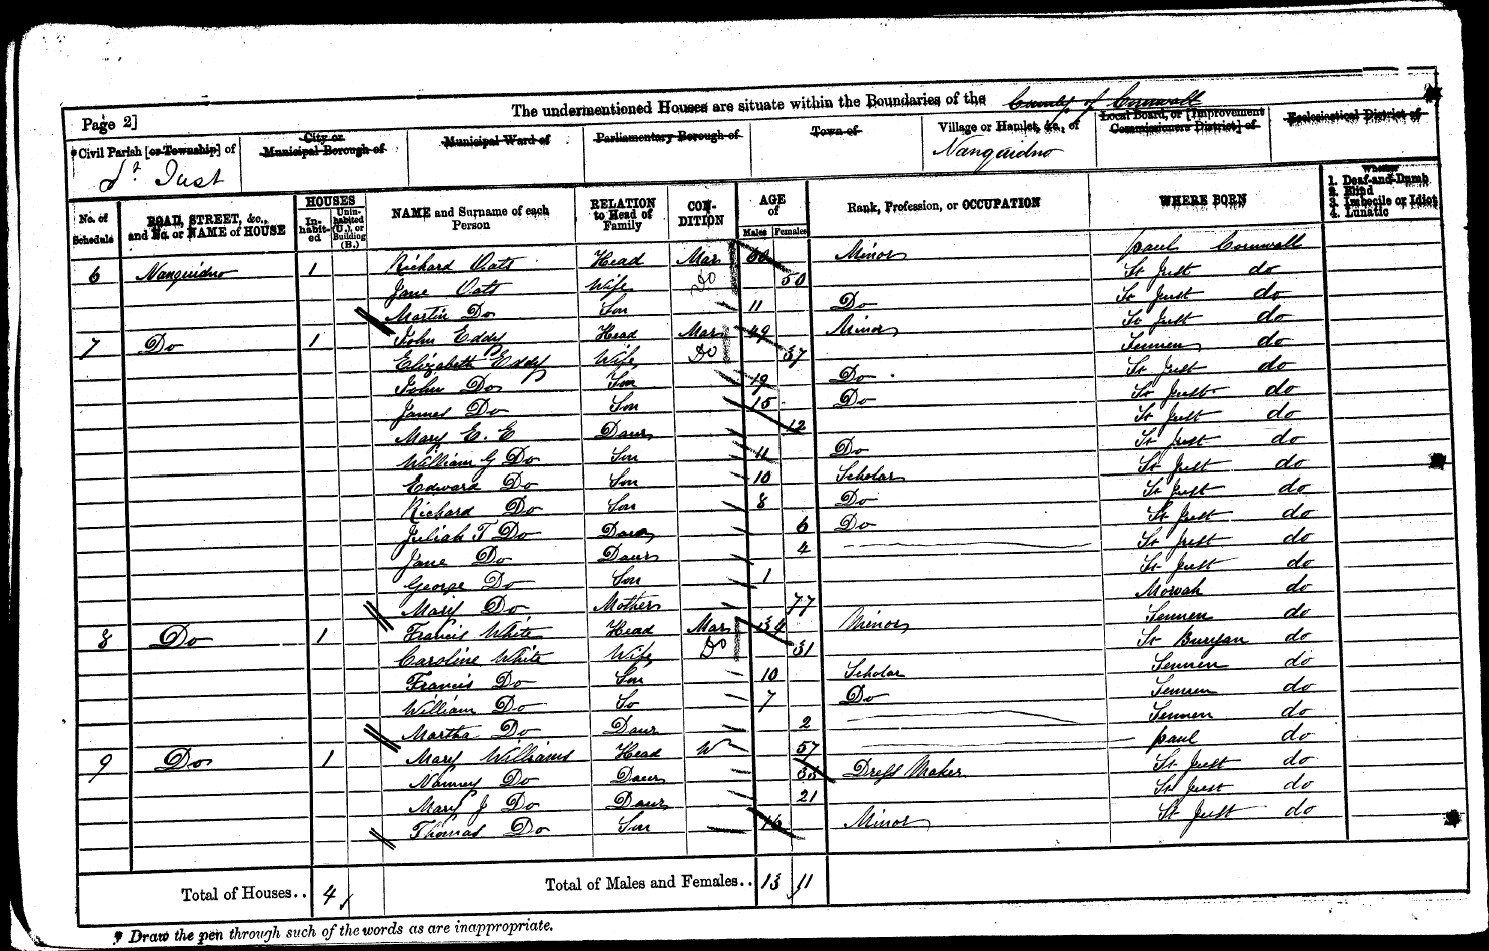 The undermentioned Houses are situate within the Boundaries of the County of Cornwall
Page 2]
Civil Parish [or Township] of St. Just
City or Municipal Borough of
Municipal Ward of
Parliamentary Borough of
Town of
Village or Hamlet, &c., of Nanquidno
Local Board, or [Improvement Commissioners District] of
Ecclesiastical District of
No. of Schedule
ROAD, STREET, &c., and No. or NAME of HOUSE
HOUSES
In-habit-ed
Unin-habited (U.), or Building (B.)
NAME and Surname of each Person
RELATION to Head of Family
CON-DITION
AGE of
Males
Females
Rank, Profession, or OCCUPATION
WHERE BORN
Whether
1. Deaf-and-Dumb
2. Blind
3. Imbecile or Idiot
4. Lunatic
6 Nanquidno 1 Richard Oats Head Mar Miner paul Cornwall
Jane Oats Wife Do 50 St Just do
Martin Do Son 11 Do St Just do
7 Do 1 John Eddy Head Mar 49 Miner St Just do
Elizabeth Eddy Wife Do 37 Sennen do
John Do Son 19 Do St Just do
James Do Son 15 Do St Just do
Mary E. E Daur 12 St Just do
William G Do Son 11 Do St Just do
Edward Do Son 10 Scholar St Just do
Richard Do Son 8 Do St Just do
Juliah T Do Daur 6 Do St Just do
Jane Do Daur 4 St Just do
George Do Son 1 St Just do
Mary Do Mother 77 Morvah do
8 Do 1 Francis White Head Mar 34 Miner Sennen do
Caroline White Wife Do 31 St Buryan do
Francis Do Son 10 Scholar Sennen do
William Do So 7 Do Sennen do
Martha Do Daur 2 Sennen do
9 Do 1 Mary Williams Head W 57 paul do
Nanney Do Daur Dress Maker St Just do
Mary J Do Daur 21 St Just do
Thomas Do Son 16 Miner St Just do
Total of Houses.. 4
Total of Males and Females.. 13 11
Draw the pen through such of the words as are inappropriate.